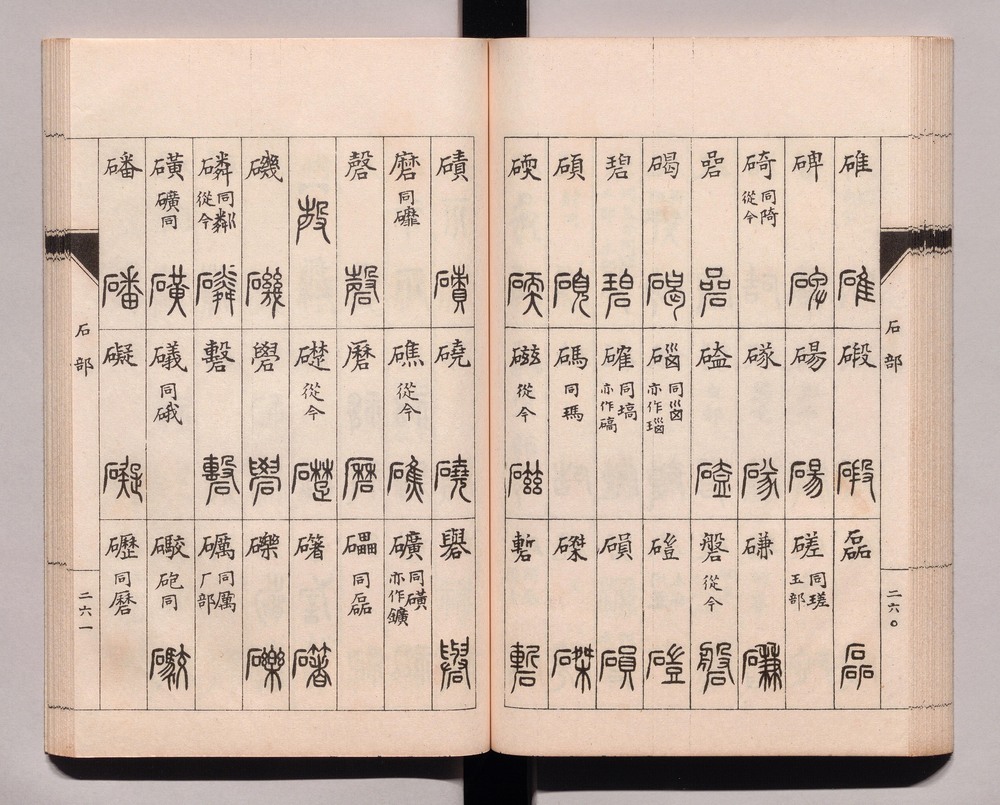 石部
二六〇
碓
碑
碕 同陭 從今
碞
碣
碧
碩
碝
碫
碭
磓
磕
碯 同𡿺 亦作瑙
確 同塙 亦作碻
碼 同瑪
磁 從今
磊
磋 同瑳 玉部
磏
磐 從今
磑
磒
磔
磛
磧
磨 同䃺
磬
磯
磷 同粼 從今
磺 礦同
磻
磽
礁 從今
磿
礎 從今
礐
礊
礒 同硪
礙
礜
礦 同磺 亦作鑛
礧 同磊
礫
礪 同厲 厂部
礮 砲同
礰 同磿
石部
二六一